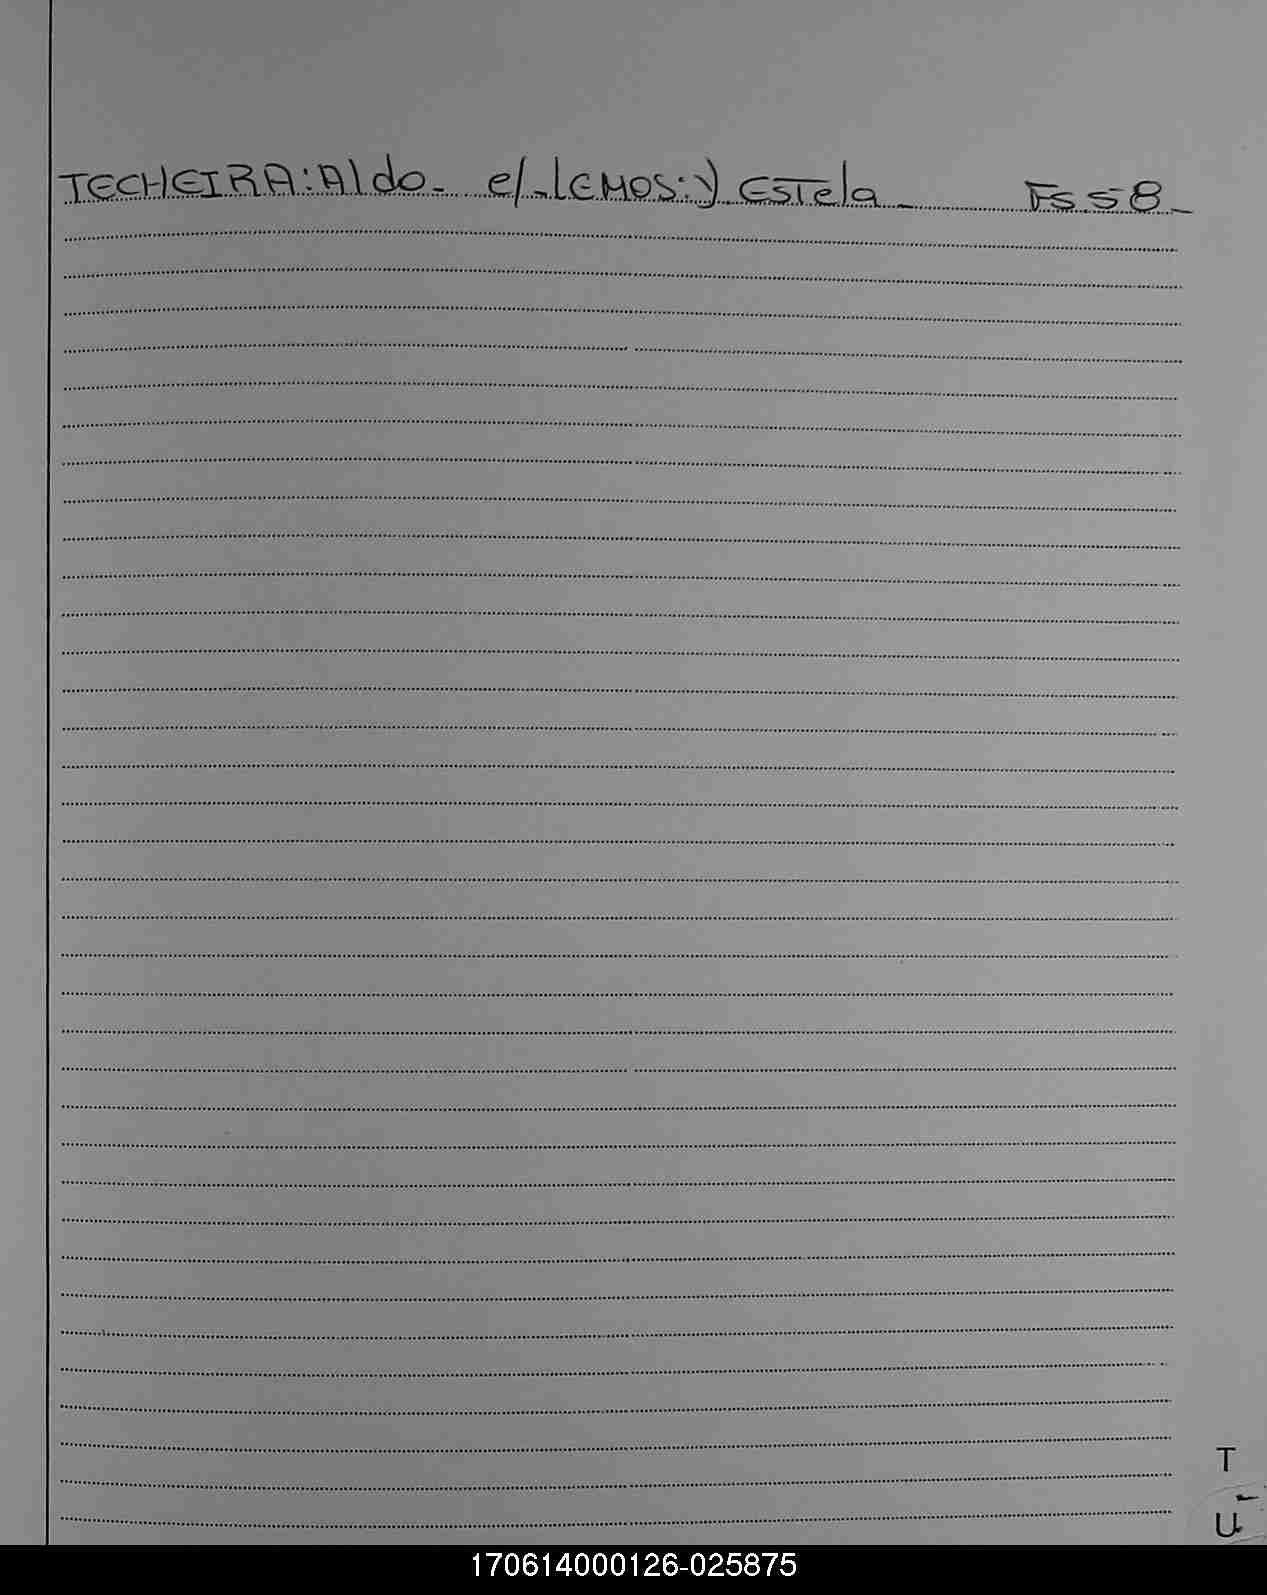 TECHEIRA: Aldo. e/. LEMOS: y Estela. Fs 58.
T
U
170614000126-025875